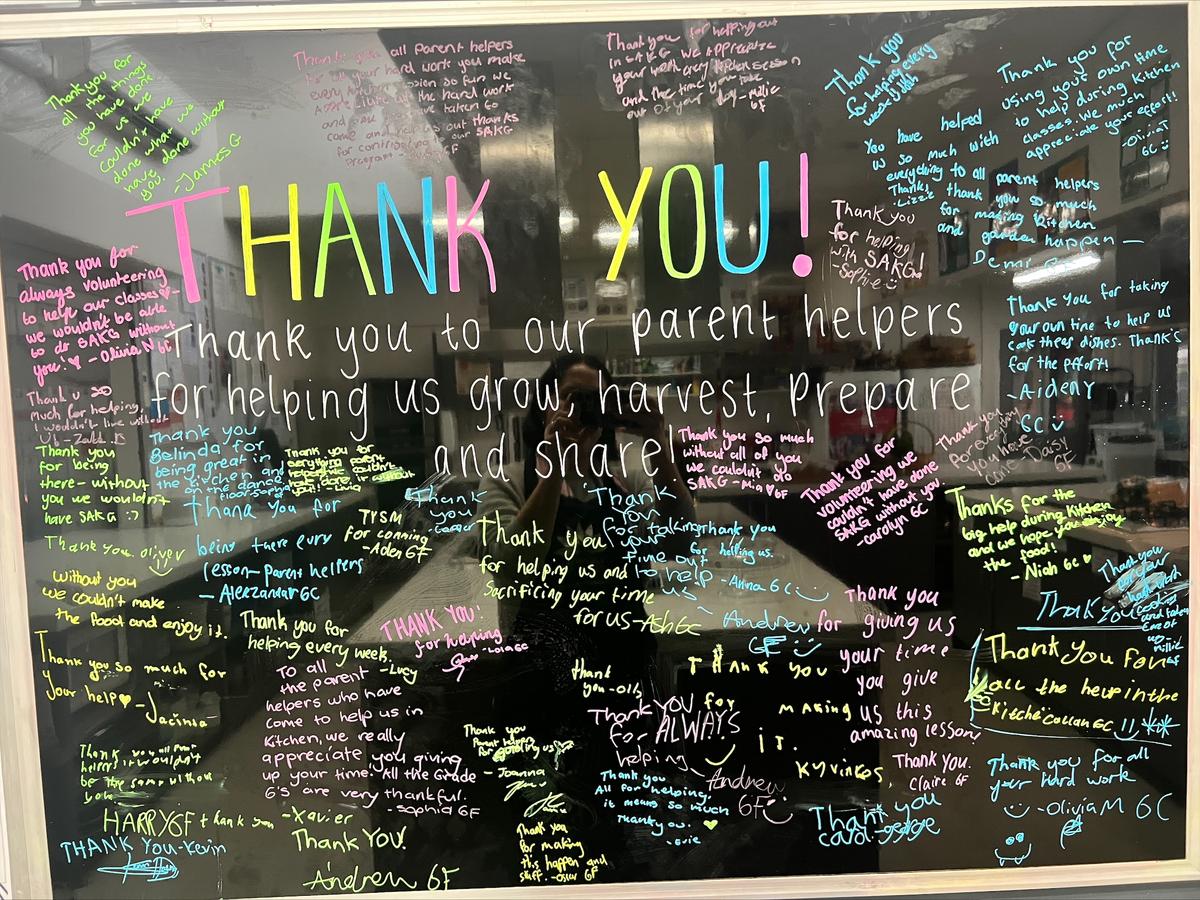 Thank you for
all the things
you have done
for us we
couldn't have
done what we
have done without
you.
-James G
Thank you all parent helpers
for all your hard work you make
every session so fun we
appreciate all the hard work
and you have taken to
come and help us out thanks
for contributing to our SAKG
program
Thank you for helping out
in SAKG we appreciate
your work every kitchen session
and the time you take
out of your day - millie
6F
Thank you
for helping every
week
Thank you for
using your own time
to help during kitchen
classes. We much
appreciate your effort!
6C
You have helped
us so much with
everything
Thanks
-Lizzi
to all parent helpers
thank you so much
for making kitchen
and garden happen —
Demi
THANK YOU!
Thank you
for helping
with SAKG!
-Sophie
Thank you for
always volunteering
to help our classes
we wouldn't be able
to do SAKG without
you! - Olivia N 6F
Thank you to our parent helpers
for helping us grow, harvest, prepare
and share!
Thank you for taking
your own time to help us
cook these dishes. Thank's
for the effort!
-Aideny
6C
Thank u so
much for helping,
I wouldn't live without
Thank you
for being
there - without
you we wouldn't
have SAKG :)
Thank you
Belinda for
being great in
the kitchen and
on the dance
floor
Thank you for
everything
Thank you so much
without all of you
we couldn't do
SAKG - Mia 6F
Thank you for
volunteering we
couldn't have done
SAKG without you.
-Carolyn 6C
Thank you
for everything
you have
done - Daisy
6F
Thanks for the
big help during kitchen
and we hope you enjoy
the food!
- Niah 6C
Thank you. Oliver
Thank you for
being there every
lesson - parent helpers
- Alexzandar 6C
TYSM
for comming
- Aden 6F
Thank
you
Thank you
for helping us and
Sacrificing your time
for us - Ash 6C
Thank
you
for taking
your
time out
to help
us
- Andrew
6F
thank you
for helling us.
-Anna 6C :)
Without you
we couldn't make
the food and enjoy it.
Thank you for
helping every week.
-Lucy
THANK YOU!
for helping
Thank you
for giving us
your time
you give
us this
amazing lesson!
Thank you.
Claire 6F
Thank you
for your
hard work
Thank you
Thank you for
all the help in the
kitche Callan 6C
Thank you so much for
your help - Jacinta
To all
the parent
helpers who have
come to help us in
Kitchen, we really
appreciate you giving
up your time. All the Grade
6's are very thankful.
-Sophia 6F
thank
you - olly
THANK YOU
for
MAKING
IT.
KYVINKOS
Thank you
for ALWAYS
helping
- Andrew
6F
Thank you
Parent helpers
for
- Joanna
Thank you all
helpers it wouldn't
be the same without
you
Thank you
All for helping,
it means so much
thank you.
- Evie
Thank you for all
your hard work
-Olivia M 6C
Thank you
HARRY 6F thank you - Xavier
THANK YOU - Kevin
Thank YOU!
Andrew 6F
Thank you
for making
this happen and
stuff. - Oscar 6F